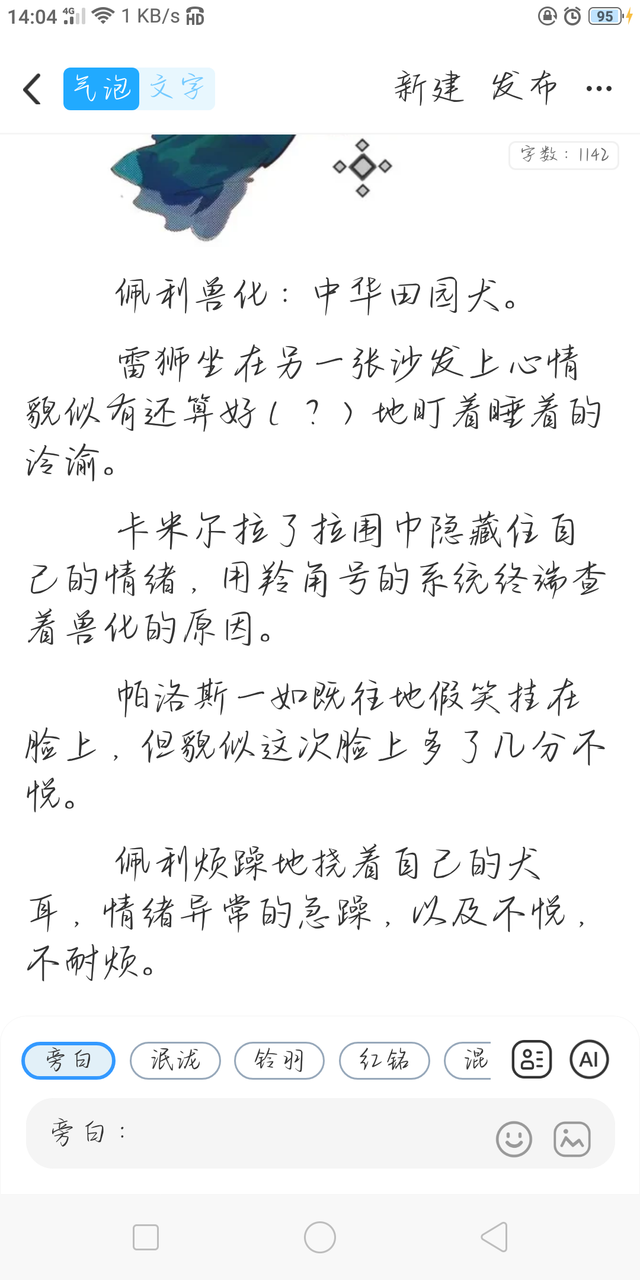 14:04 4G 1 KB/s HD 95
气泡 文字 新建 发布
字数：1142
佩利兽化：中华田园犬。
雷狮坐在另一张沙发上心情
貌似有还算好（？）地盯着睡着的
泠谕。
卡米尔拉了拉围巾隐藏住自
己的情绪，用羚角号的系统终端查
着兽化的原因。
帕洛斯一如既往地假笑挂在
脸上，但貌似这次脸上多了几分不
悦。
佩利烦躁地挠着自己的犬
耳，情绪异常的急躁，以及不悦，
不耐烦。
旁白 泯泷 铃羽 红铭 混 AI
旁白：